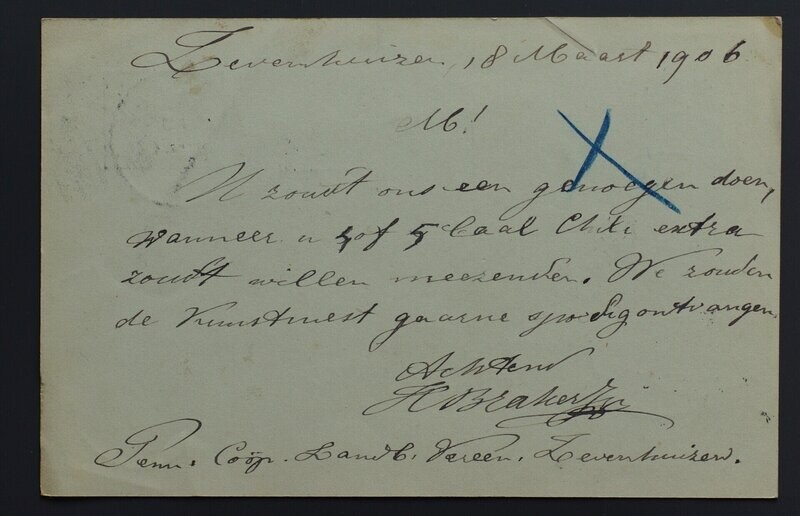 Zevenhuizen, 18 Maart 1906
M!
U zoudt ons een genoegen doen,
wanneer u 4 of 5 baal Chili extra
zoudt willen meezenden. We zouden
de Kunstmest gaarne spoedig ontvangen.
Achtend
H Braker
Penn. Coöp. Landb. Vereen. Zevenhuizen.